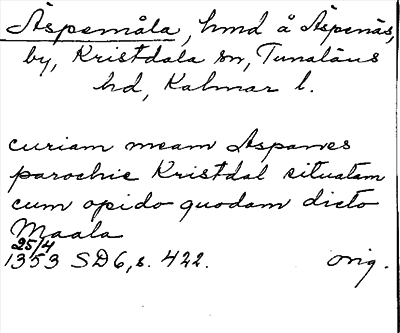 Äspemåla, hmd å Äspenäs,
by, Kristdala sn, Tunaläns
hd, Kalmar l.
curiam meam Aspanes
parochie Kristdal situatam
cum opido quodam dicto
Maala
25/4
1353 SD 6, s. 422. orig.